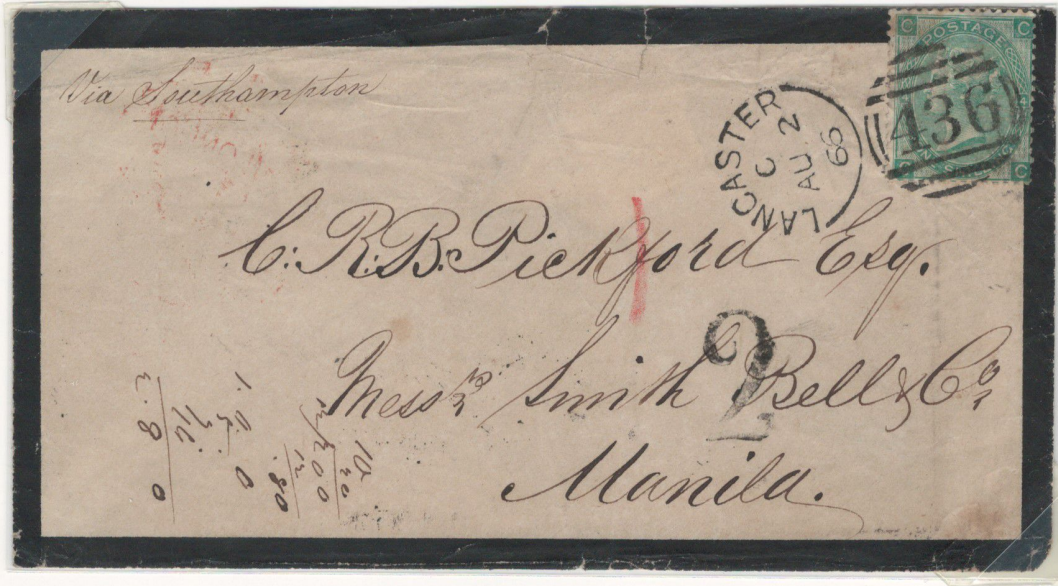 Via Southampton
C POSTAGE C
436
C C
LANCASTER
C
AU 2
66
C. R. B. Pickford Esq.
2
Messrs Smith Bell & Co
Manila.